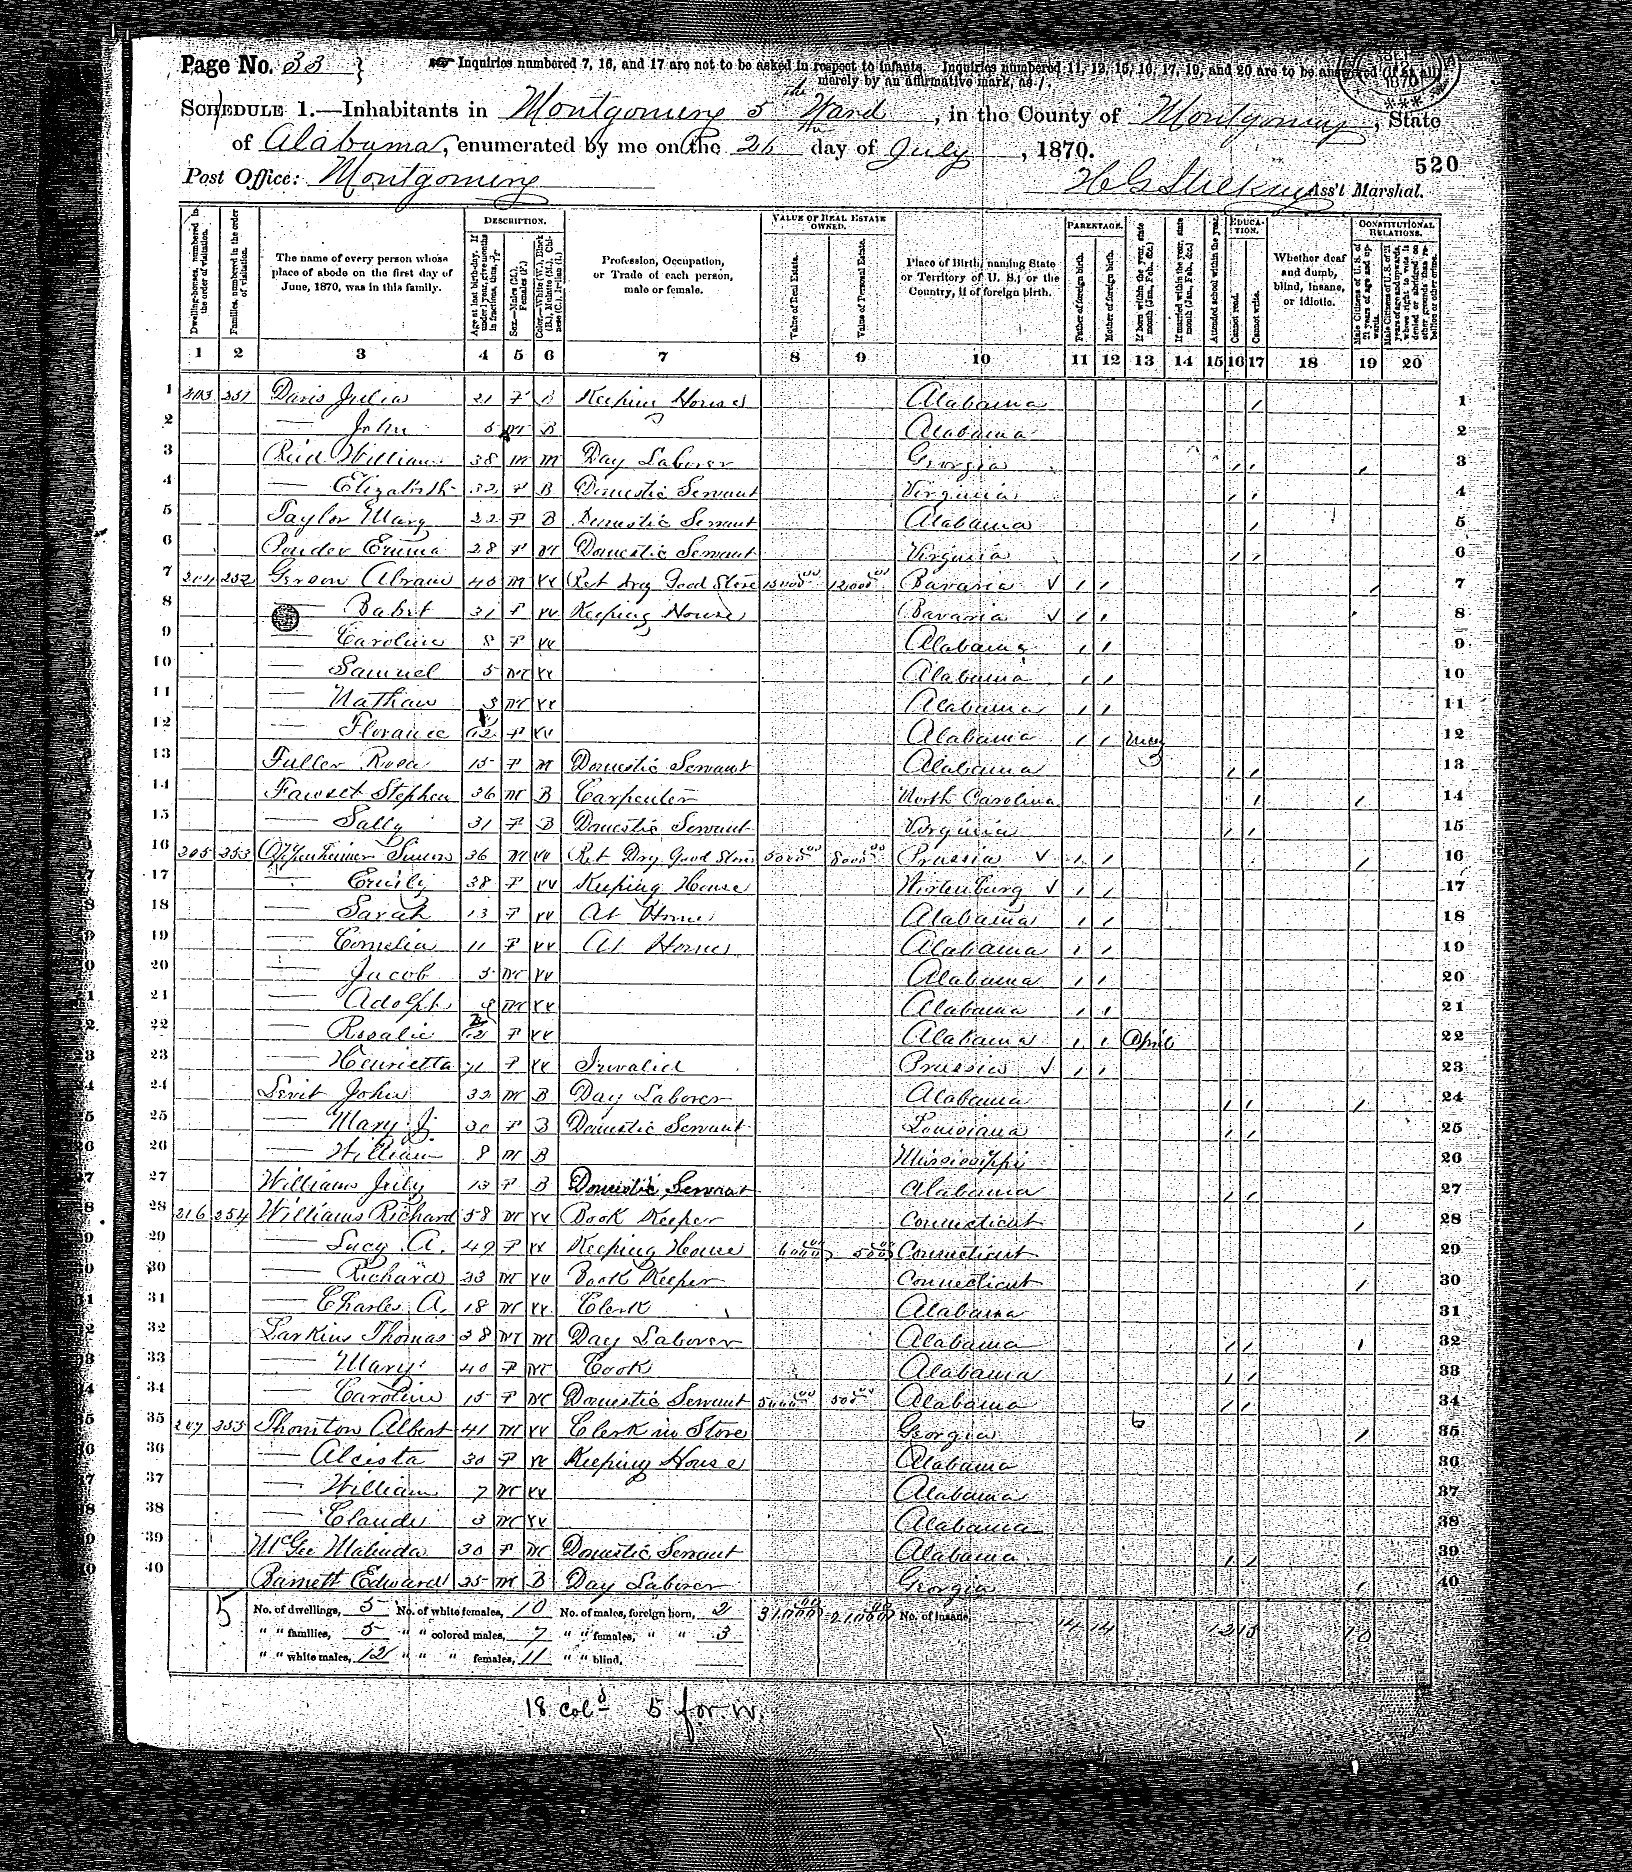 Page No. 33 } Inquiries numbered 7, 16, and 17 are not to be asked in respect to infants. Inquiries numbered 11, 12, 15, 16, 17, 19, and 20 are to be answered (if at all)
merely by an affirmative mark, as /.
SCHEDULE 1.—Inhabitants in Montgomery 5th Ward, in the County of Montgomery, State
of Alabama, enumerated by me on the 26th day of July, 1870.
520
Post Office: Montgomery
Ass't Marshal.
Dwelling-houses, numbered in the order of visitation.
Families, numbered in the order of visitation.
The name of every person whose place of abode on the first day of June, 1870, was in this family.
DESCRIPTION.
Age at last birth-day. If under 1 year, give months in fractions, thus, 3/12
Sex.—Males (M.), Females (F.)
Color.—White (W.), Black (B.), Mulatto (M.), Chinese (C.), Indian (I.)
Profession, Occupation, or Trade of each person, male or female.
VALUE OF REAL ESTATE OWNED.
Value of Real Estate.
Value of Personal Estate.
Place of Birth, naming State or Territory of U. S.; or the Country, if of foreign birth.
PARENTAGE.
Father of foreign birth.
Mother of foreign birth.
If born within the year, state month (Jan., Feb., &c.)
If married within the year, state month (Jan., Feb., &c.)
Attended school within the year.
EDUCATION.
Cannot read.
Cannot write.
Whether deaf and dumb, blind, insane, or idiotic.
CONSTITUTIONAL RELATIONS.
Male Citizens of U. S. of 21 years of age and upwards.
Male Citizens of U. S. of 21 years of age and upwards, whose right to vote is denied or abridged on other grounds than rebellion or other crime.
1 2 3 4 5 6 7 8 9 10 11 12 13 14 15 16 17 18 19 20
1 203 251 Davis Julia 21 F B Keeping House Alabama / 1
2 — John 5 M B Alabama 2
3 Reid William 38 M M Day Laborer Georgia / / / 3
4 — Elizabeth 32 F B Domestic Servant Virginia / / 4
5 Taylor Mary 22 F B Domestic Servant Alabama / 5
6 Emma 28 F M Domestic Servant Virginia / / 6
7 204 252 Abram 40 M W Ret Dry Good Store 12000 00 Bavaria / / / 7
8 — Babet 31 F W Keeping House Bavaria / / 8
9 — Caroline 8 F W Alabama / / 9
10 — Samuel 5 M W Alabama / / 10
11 — Nathan 3 M W Alabama / / 11
12 — Floranee F W Alabama / / May 12
13 Fuller Rosa 15 F M Domestic Servant Alabama / / 13
14 Fawset Stephen 36 M B Carpenter North Carolina / / 14
15 — Sally 31 F B Domestic Servant Virginia / / 15
16 205 253 Oppenheimer Simon 36 M W Ret Dry Good Store 5000 00 8000 00 Prussia / / / 16
17 — Emily 38 F W Keeping House Wirtenburg / / 17
18 — Sarah 13 F W At Home Alabama / / 18
19 — Cornelia 11 F W At Home Alabama / / 19
20 — Jacob 5 M W Alabama / / 20
21 — Adolph M W Alabama / / 21
22 — Rosalie F W Alabama / / April 22
23 — Henrietta 71 F W Invalid Prussia / / 23
24 John 32 M B Day Laborer Alabama / / / 24
25 — Mary J. 30 F B Domestic Servant Louisiana / / 25
26 — William 8 M B Mississippi 26
27 Williams July 13 F B Domestic Servant Alabama / / 27
28 216 254 Williams Richard 58 M W Book Keeper Connecticut / 28
29 — Lucy A. 49 F W Keeping House 6000 00 500 Connecticut 29
30 — Richard 23 M W Book Keeper Connecticut / 30
31 — Charles A. 18 M W Clerk Alabama 31
32 Larkins Thomas 38 M M Day Laborer Alabama / / / 32
33 — Mary 40 F M Cook Alabama / / 33
34 — Caroline 15 F M Domestic Servant 5000 00 500 00 Alabama / / 34
35 207 255 Thornton Albert 41 M W Clerk in Store Georgia / 35
36 — Alcista 30 F W Keeping House Alabama 36
37 — William 7 M W Alabama 37
38 — Claude 3 M W Alabama 38
39 McGee Malinda 30 F M Domestic Servant Alabama / / 39
40 Barnett Edward 25 M B Day Laborer Georgia / 40
5 No. of dwellings, 5 No. of white females, 10 No. of males, foreign born, 2 31,000 00 21,000 00 No. of insane, 14 14 12 15 10
" " families, 5 " " colored males, 7 " " females, " " 3
" " white males, 12 " " " females, 11 " " blind,
18 cold 5 for. w.